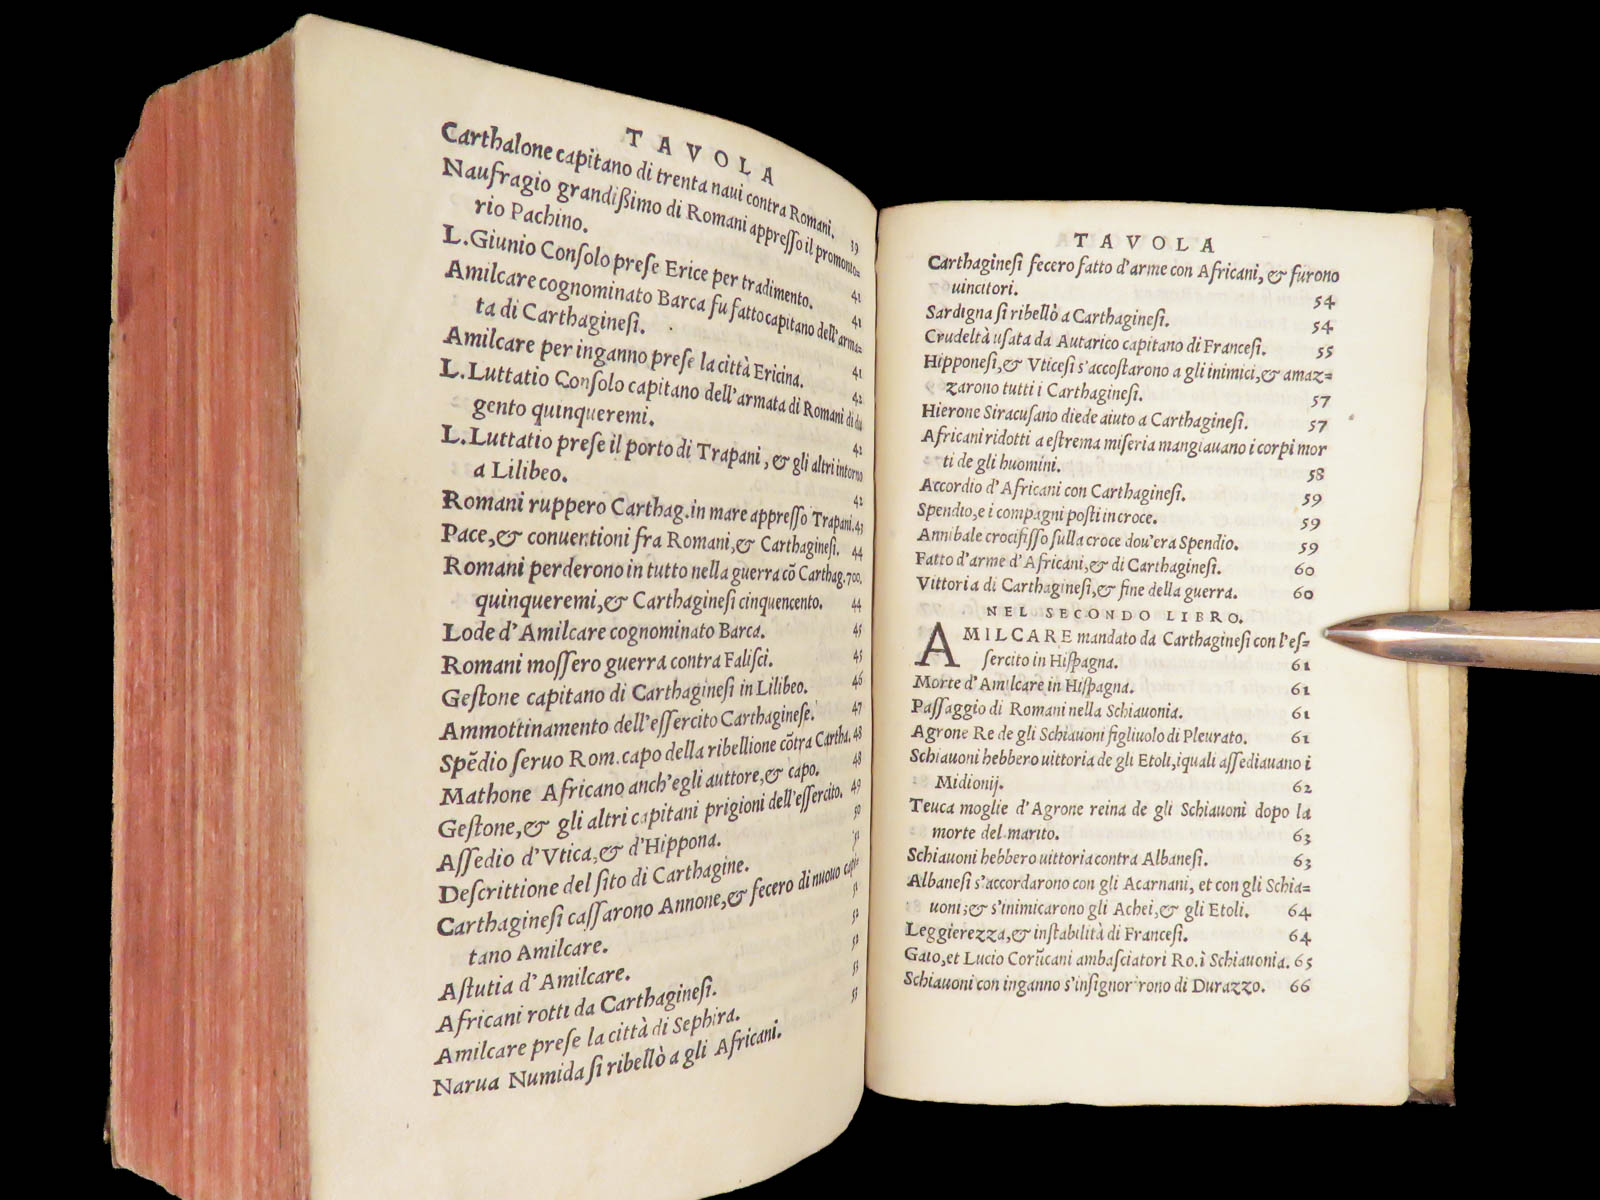 TAVOLA
Carthalone capitano di trenta naui contra Romani. 39
Naufragio grandißimo di Romani appreſſo il promonto=
rio Pachino. 41
L. Giunio Conſolo preſe Erice per tradimento. 41
Amilcare cognominato Barca fu fatto capitano dell'arma=
ta di Carthagineſi. 41
Amilcare per inganno preſe la città Ericina. 42
L. Luttatio Conſolo capitano dell'armata di Romani di du
gento quinqueremi. 42
L. Luttatio preſe il porto di Trapani, & gli altri intorno
a Lilibeo. 42
Romani ruppero Carthag. in mare appreſſo Trapani. 43
Pace, & conuentioni fra Romani, & Carthagineſi. 44
Romani perderono in tutto nella guerra cõ Carthag. 700.
quinqueremi, & Carthagineſi cinquencento. 44
Lode d'Amilcare cognominato Barca. 45
Romani moſſero guerra contra Faliſci. 45
Geſtone capitano di Carthagineſi in Lilibeo. 46
Ammottinamento dell'eſſercito Carthagineſe. 47
Spẽdio ſeruo Rom. capo della ribellione cõtra Cartha. 48
Mathone Africano anch'egli auttore, & capo. 48
Geſtone, & gli altri capitani prigioni dell'eſſercito. 49
Aſſedio d'Vtica, & d'Hippona. 50
Deſcrittione del ſito di Carthagine. 51
Carthagineſi caſſarono Annone, & fecero di nuouo capi=
tano Amilcare. 51
Aſtutia d'Amilcare. 52
Africani rotti da Carthagineſi. 52
Amilcare preſe la città di Sephira. 53
Narua Numida ſi ribellò a gli Africani. 53
TAVOLA
Carthagineſi fecero fatto d'arme con Africani, & furono
uincitori. 54
Sardigna ſi ribellò a Carthagineſi. 54
Crudeltà uſata da Autarico capitano di Franceſi. 55
Hipponeſi, & Vticeſi s'accoſtarono a gli inimici, & amaz=
zarono tutti i Carthagineſi. 57
Hierone Siracuſano diede aiuto a Carthagineſi. 57
Africani ridotti a eſtrema miſeria mangiauano i corpi mor
ti de gli huomini. 58
Accordio d'Africani con Carthagineſi. 59
Spendio, e i compagni poſti in croce. 59
Annibale crocifiſſo ſulla croce dou'era Spendio. 59
Fatto d'arme d'Africani, & di Carthagineſi. 60
Vittoria di Carthagineſi, & fine della guerra. 60
NEL SECONDO LIBRO.
AMILCARE mandato da Carthagineſi con l'eſ=
ſercito in Hiſpagna. 61
Morte d'Amilcare in Hiſpagna. 61
Paſſaggio di Romani nella Schiauonia. 61
Agrone Re de gli Schiauoni figliuolo di Pleurato. 61
Schiauoni hebbero uittoria de gli Etoli, iquali aſſediauano i
Midionij. 62
Teuca moglie d'Agrone reina de gli Schiauoni dopo la
morte del marito. 63
Schiauoni hebbero uittoria contra Albaneſi. 63
Albaneſi s'accordarono con gli Acarnani, et con gli Schia=
uoni; & s'inimicarono gli Achei, & gli Etoli. 64
Leggierezza, & inſtabilità di Franceſi. 64
Gaio, et Lucio Corũcani ambaſciatori Ro. ì Schiauonia. 65
Schiauoni con inganno s'inſignorirono di Durazzo. 66